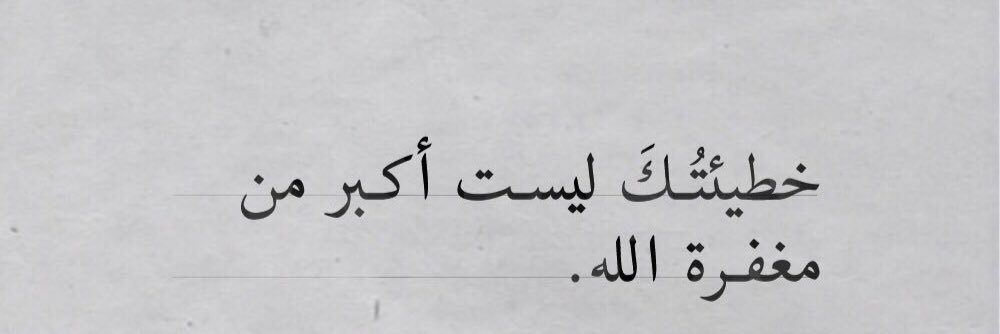 خطيئتُكَ ليست أكبر من
مغفرة الله.